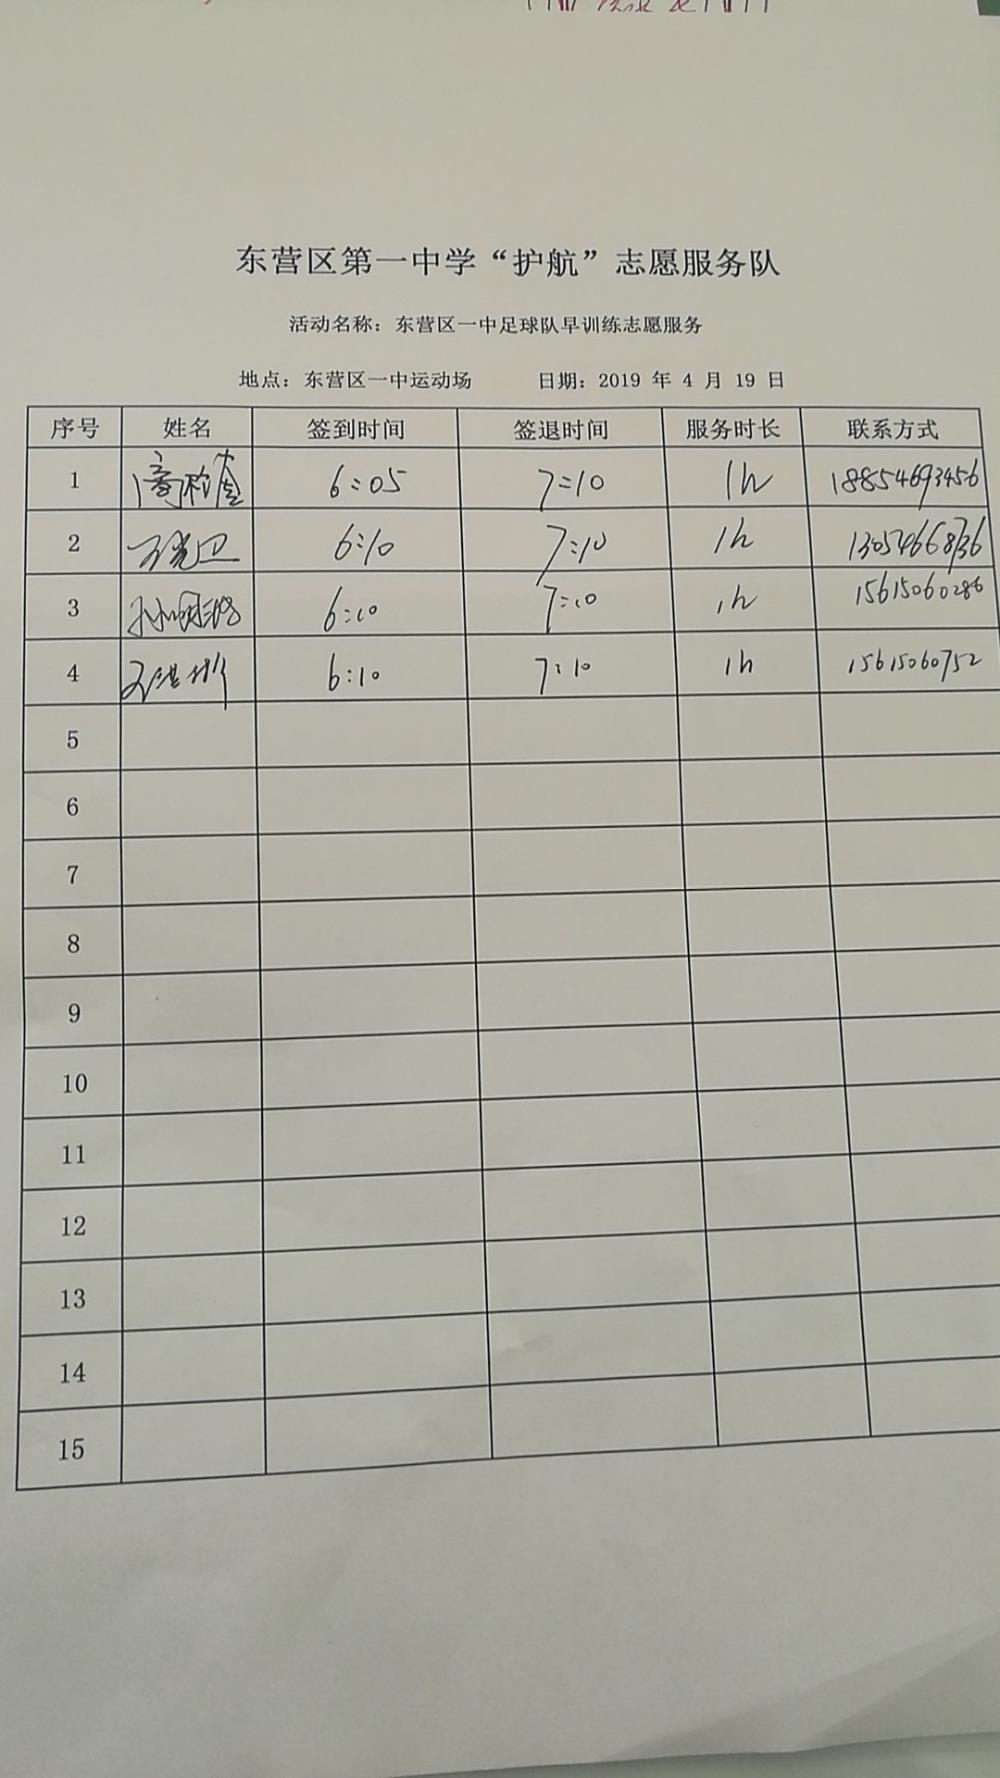 东营区第一中学“护航”志愿服务队
活动名称：东营区一中足球队早训练志愿服务
地点：东营区一中运动场 日期：2019 年 4 月 19 日
序号 姓名 签到时间 签退时间 服务时长 联系方式
1 6:05 7:10 1h 18854693456
2 6:10 7:10 1h 13054668736
3 6:10 7:10 1h 15615060286
4 6:10 7:10 1h 15615060752
5
6
7
8
9
10
11
12
13
14
15